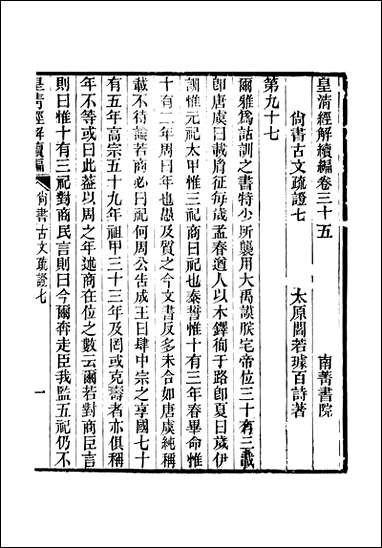 皇清經解續編卷三十五
南菁書院
尙書古文疏證七
太原閻若璩百詩著
第九十七
爾雅爲詁訓之書特少所襲用大禹謨朕宅帝位三十有三載
卽唐虞曰載胤征每歲孟春遒人以木鐸徇于路卽夏曰歲伊
訓惟元祀太甲惟三祀商曰祀也泰誓惟十有三年春畢命惟
十有二年周曰年也愚及質之今文書反多未合如唐虞純稱
載不待論若商必曰祀何周公告成王曰肆中宗之享國七十
有五年高宗五十九年祖甲三十三年及罔或克壽者亦俱稱
年不等或曰此蓋以周之年述商在位之數云爾若對商臣言
則曰惟十有三祀對商民言則曰今爾奔走臣我監五祀仍不
皇淸經解續編
尙書古文疏證七
一